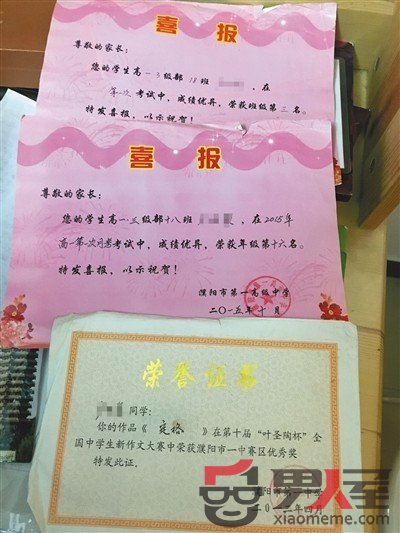 喜报
尊敬的家长：
您的学生高一·3级部18班
，在
第一次考试中，成绩优异，荣获班级第三名。
特发喜报，以示祝贺！
喜报
尊敬的家长：
您的学生高一·三级部十八班
，在2015年
高一第一次月考考试中，成绩优异，荣获年级第十六名。
特发喜报，以示祝贺！
濮阳市第一高级中学
二〇一五年十月
荣誉证书
同学：
你的作品《定格》在第十届“叶圣陶杯”全
国中学生新作文大赛中荣获濮阳市一中赛区优秀奖
特发此证。
年四月
男人窝
xiaomeme.com